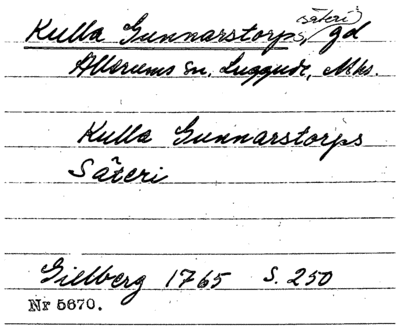 säteri
Kulla Gunnarstorps, gd
Allerums sn, Luggude, Mhs.
Kulla Gunnarstorps
Säteri
Gillberg 1765 S. 250
Nr 5670.